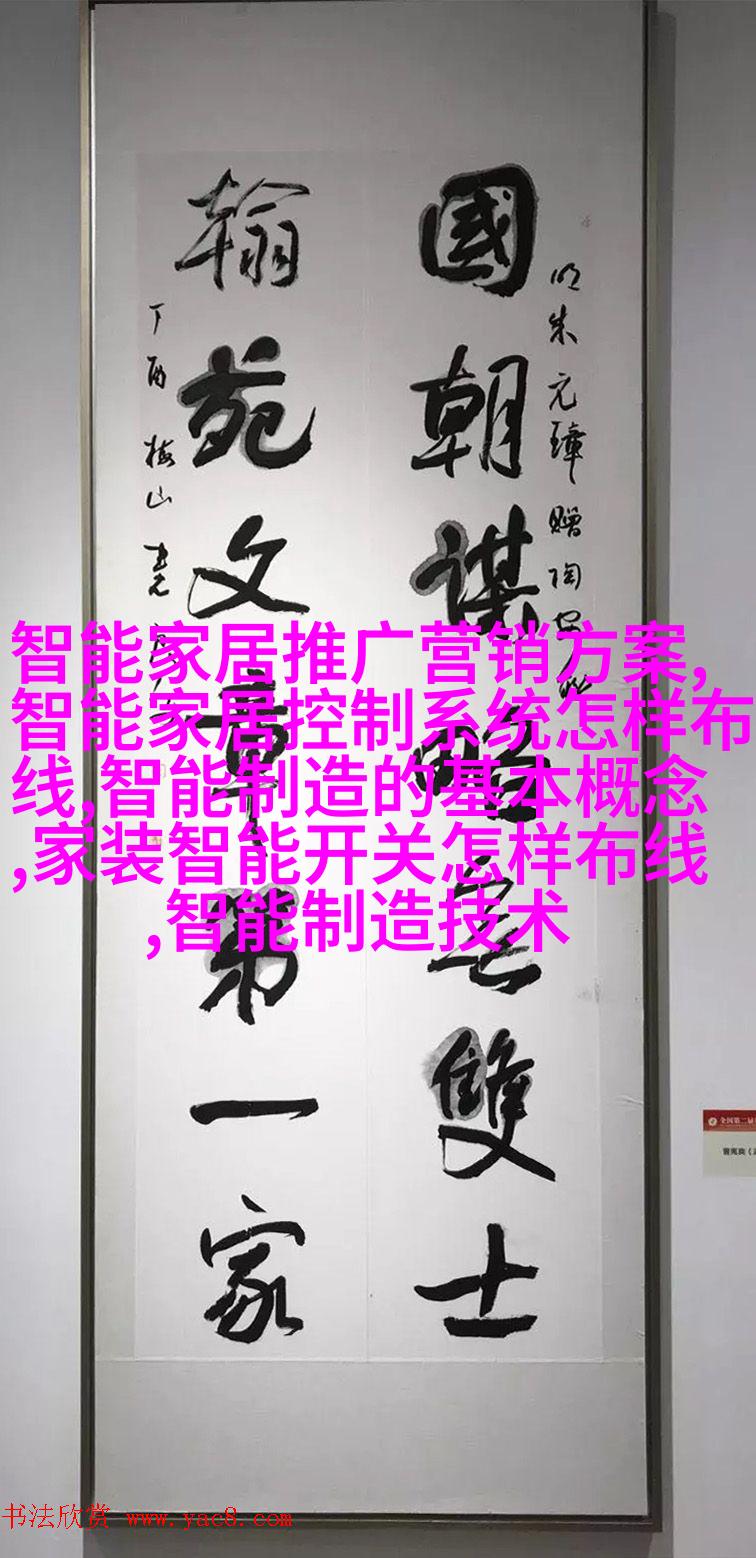 國朝謀略無雙士
翰苑文章第一家
明朱元璋贈陶安
丁酉 梅山
智能家居推广营销方案,
智能家居控制系统怎样布
线,智能制造的基本概念
,家装智能开关怎样布线
,智能制造技术
全国第二届
书法欣赏 www.yac8.com